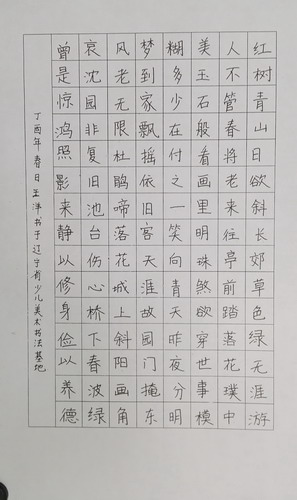 红树青山日欲斜长郊草色绿无涯游
人不管春将老来往亭前踏落花璞中
美玉石般看画里明珠煞欲穿世事模
糊多少在付之一笑向青天昨夜分明
梦到家飘摇依旧客天涯故园门掩东
风老无限杜鹃啼落花城上斜阳画角
哀沈园非复旧池台伤心桥下春波绿
曾是惊鸿照影来静以修身俭以养德
丁酉年春日王洋书于辽宁省少儿美术书法基地